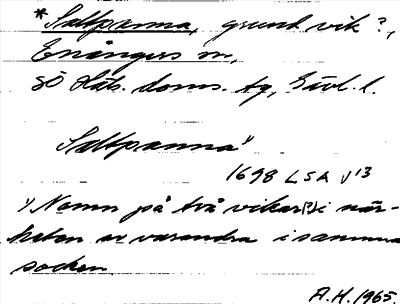 *Saltpanna, grund vik?,
Enångers sn,
SÖ Häls. doms. tg, Gävl. l.
Saltpanna¹⁾
1698 LSA V13
¹⁾ Namn på två vikar(?) i när-
heten av varandra i samma
socken
A.H. 1965.